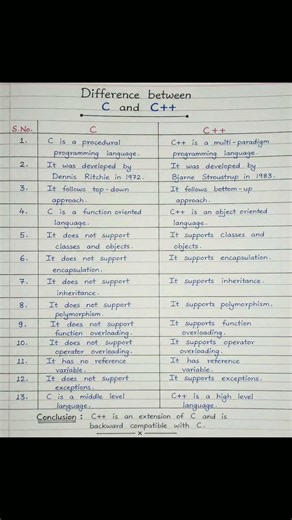 Difference between
C and C++
S.No. C C++
1. C is a procedural C++ is a multi-paradigm
programming language. programming language.
2. It was developed by It was developed by
Dennis Ritchie in 1972. Bjarne Stroustrup in 1983.
3. It follows top-down It follows bottom-up
approach. approach.
4. C is a function oriented C++ is an object oriented
language. language.
5. It does not support It supports classes and
classes and objects. objects.
6. It does not support It supports encapsulation.
encapsulation.
7. It does not support It supports inheritance.
inheritance.
8. It does not support It supports polymorphism.
polymorphism.
9. It does not support It supports function
function overloading. overloading.
10. It does not support It supports operator
operator overloading. overloading.
11. It has no reference It has reference
variable. variable.
12. It does not support It supports exceptions.
exceptions.
13. C is a middle level C++ is a high level
language. language.
Conclusion : C++ is an extension of C and is
backward compatible with C.